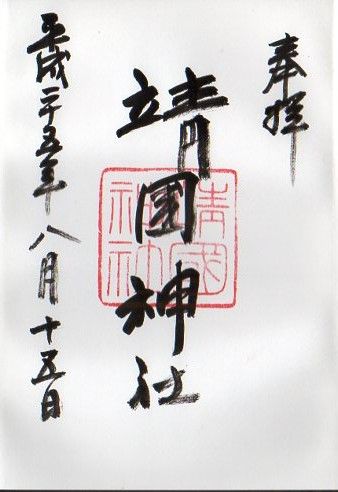 奉拝
靖國神社
靖國神社
平成二十五年八月十五日